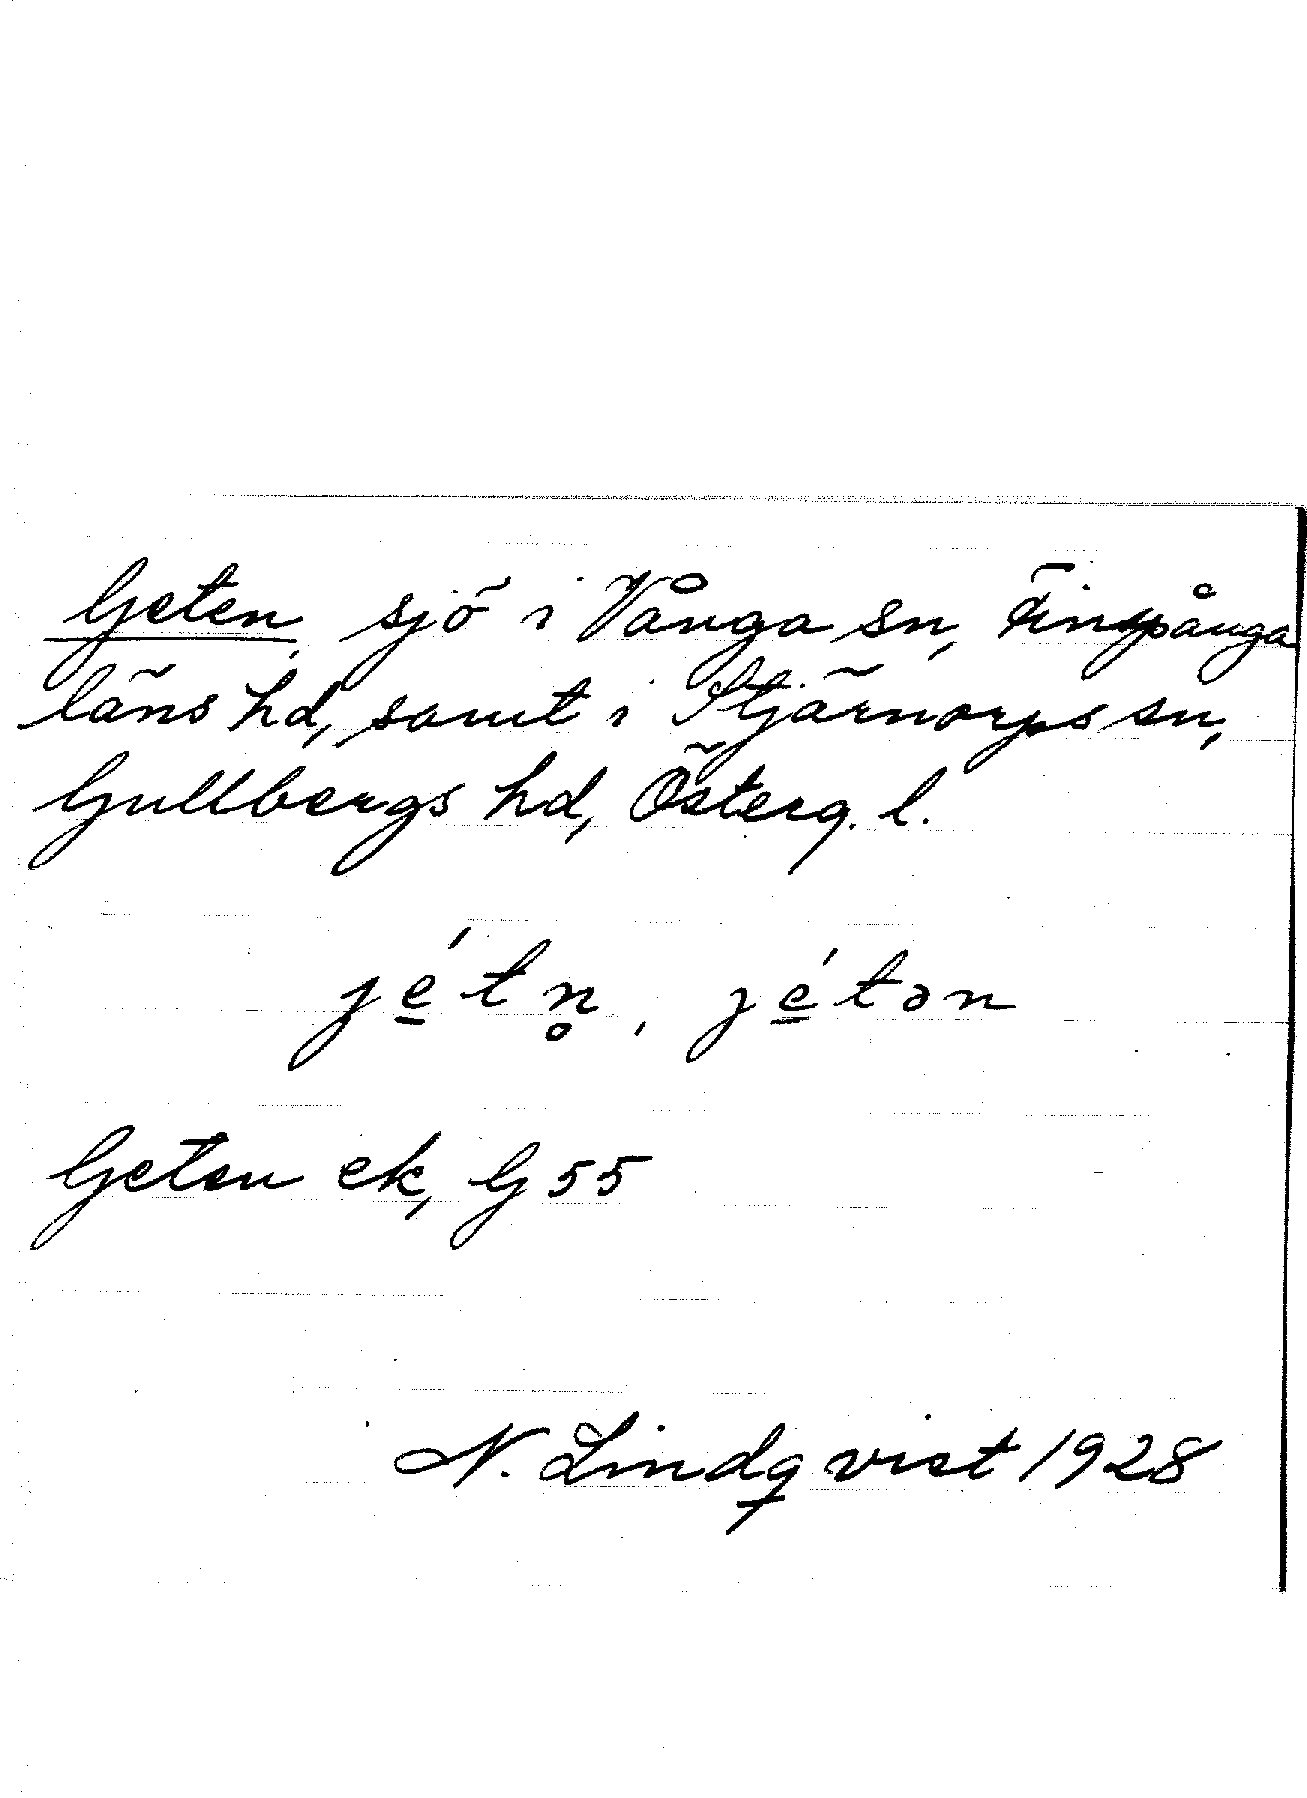 Geten, sjö i Vånga sn, Finspånga
läns hd, samt i Stjärnorps sn,
Gullbergs hd, Österg. l.
jé̱tn̥, jé̱tən
Geten ek, G 55
N. Lindqvist 1928